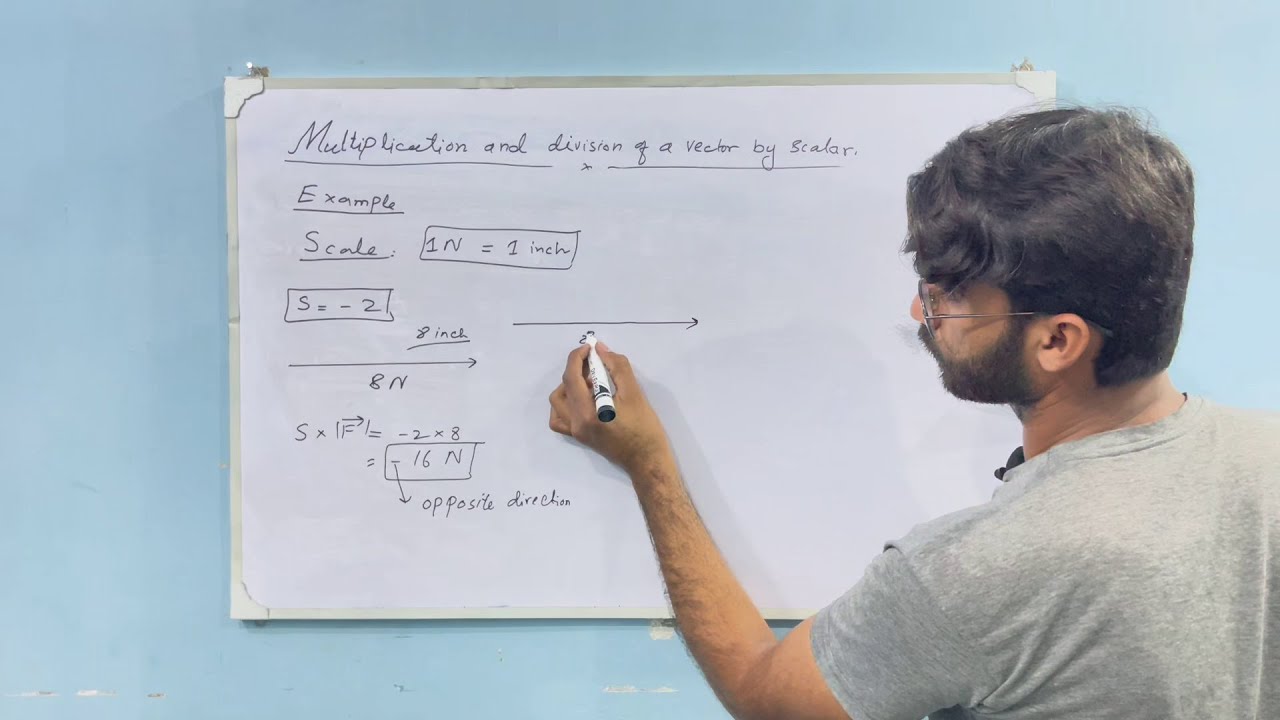 Multiplication and division of a vector by scalar.
Example
Scale: 1N = 1 inch
S = - 2
8 inch
8N
S × |F| = -2 × 8
= - 16 N
opposite direction